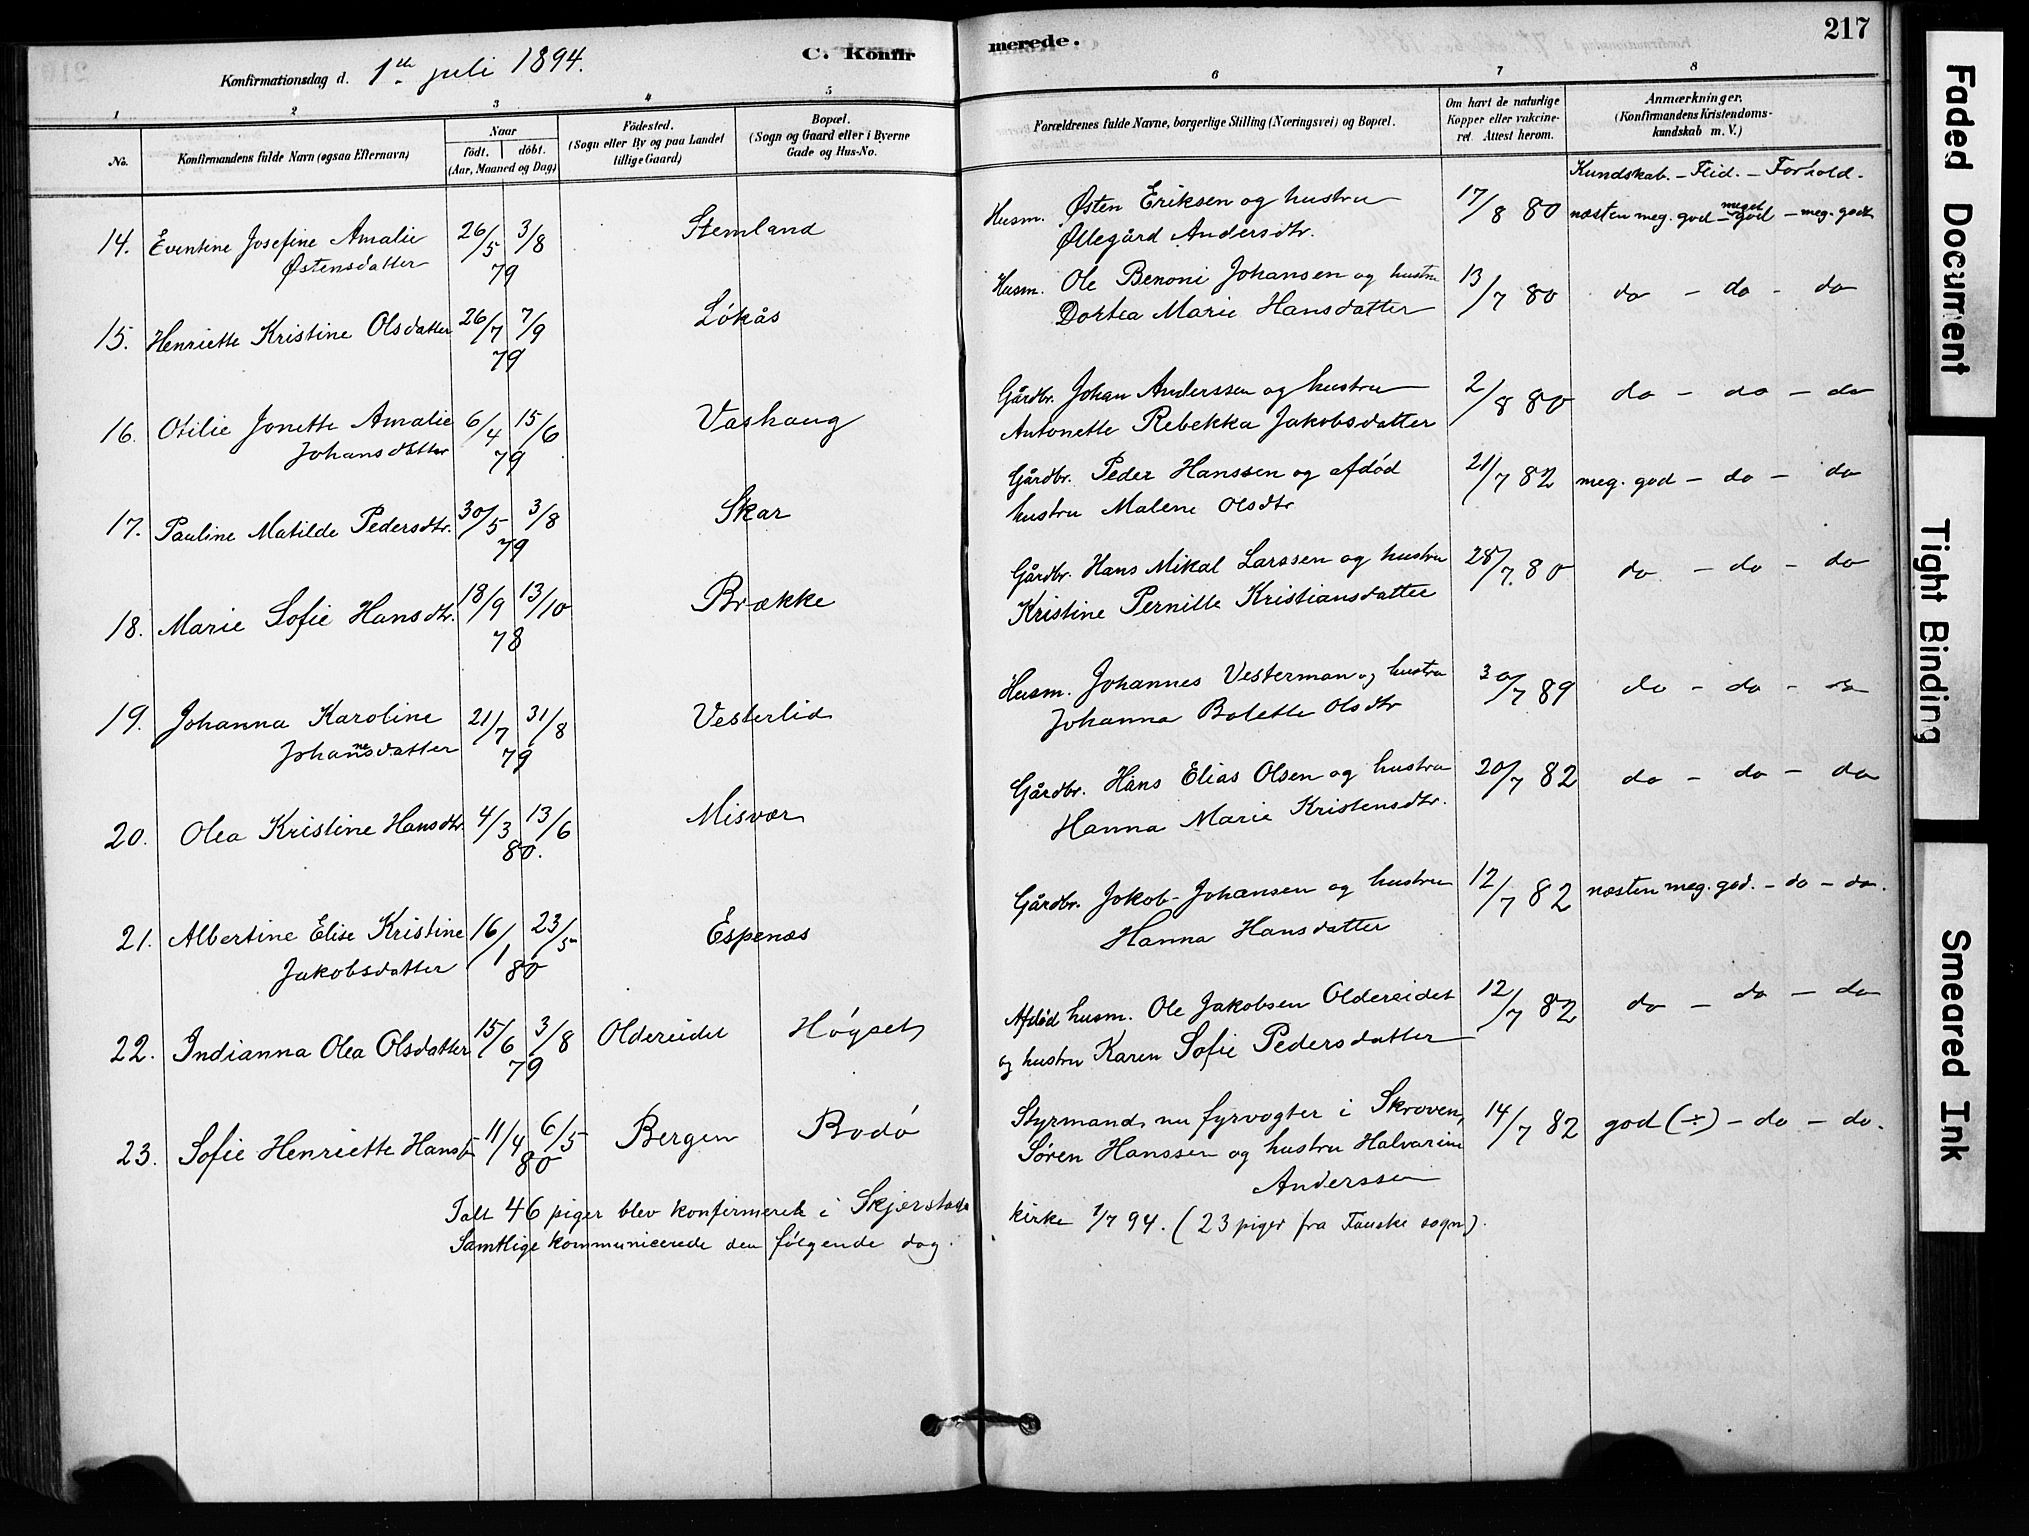 C. Konfirmerede.
217
Konfirmationsdag d. 1te juli 1894.
1 2 3 4 5 6 7 8
No.
Konfirmandens fulde Navn (ogsaa Efternavn)
Naar
født. døbt.
(Aar, Maaned og Dag)
Fødested.
(Sogn eller By og paa Landet
tillige Gaard)
Bopæl.
(Sogn og Gaard eller i Byerne
Gade og Hus-No.
Forældrenes fulde Navne, borgerlige Stilling (Næringsvei) og Bopæl.
Om havt de naturlige
Kopper eller vakcine-
ret. Attest herom.
Anmærkninger.
(Konfirmandens Kristendoms-
kundskab m. V.)
Kundskab. - Flid. - Forhold.
14. Eventine Josefine Amalie 26/5 3/8 Stemland
Østensdatter 79
Husm. Østen Eriksen og hustru 17/8 80 næsten meg. god - meget god - meg. godt
Øllegård Andersdtr.
15. Henriette Kristine Olsdatter 26/7 7/9 Løkås
79
Husm. Ole Benoni Johansen og hustru 13/7 80 do - do - do
Dortea Marie Hansdatter
16. Otilie Jonette Amalie 6/4 15/6 Vashaug
Johansdatter 79
Gårdbr. Johan Anderssen og hustru 2/8 80 do - do - do
Antonette Rebekka Jakobsdatter
17. Pauline Matilde Pedersdtr. 30/5 3/8 Skar
79
Gårdbr. Peder Hanssen og afdød 21/7 82 meg. god - do - do
hustru Malene Olsdtr
18. Marie Sofie Hansdtr. 18/9 13/10 Brække
78
Gårdbr. Hans Mikal Larssen og hustru 28/7 80 do - do - do
Kristine Pernille Kristiansdatter
19. Johanna Karoline 21/7 31/8 Vesterlid
Johannesdatter 79
Husm. Johannes Vesterman og hustru 30/7 89 do - do - do
Johanna Bolette Olsdtr
20. Olea Kristine Hansdtr. 4/3 13/6 Misvær
80.
Gårdbr. Hans Elias Olsen og hustru 20/7 82 do - do - do
Hanna Marie Kristensdtr.
21. Albertine Elise Kristine 16/1 23/5 Espenæs
Jakobsdatter 80
Gårdbr. Jokob Johansen og hustru 12/7 82 næsten meg. god. - do - do.
Hanna Hansdatter
22. Indianna Olea Olsdatter 15/6 3/8 Oldereidet Høgset
79
Afdød husm. Ole Jakobsen Oldereidet 12/7 82 do - do - do
og hustru Karen Sofie Pedersdatter
23. Sofie Henriette Hansen 11/4 6/5 Bergen Bodø
80
Styrmand, nu fyrvogter i Skroven, 14/7 82 god (÷) - do - do.
Søren Hanssen og hustru Halvarine
Anderssen
Ialt 46 piger blev konfirmerede i Skjerstads kirke 1/7 94. (23 piger fra Fauske sogn).
Samtlige kommunicerede den følgende dag.
Faded Document
Tight Binding
Smeared Ink